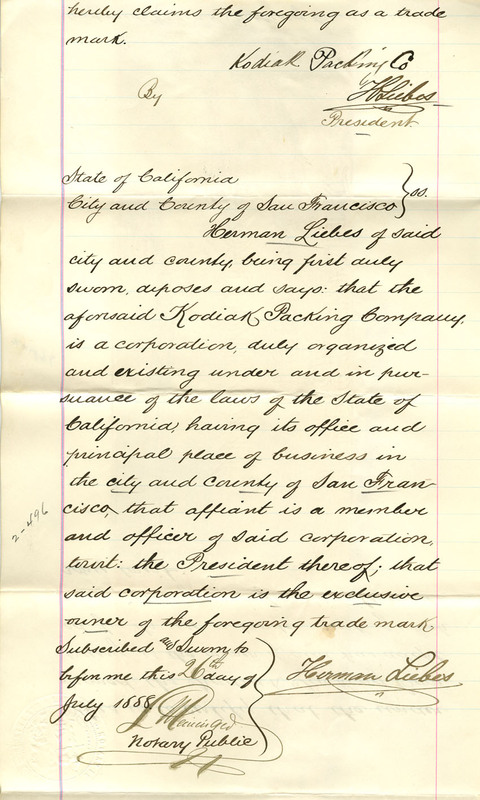 hereby claims the foregoing as a trade
mark.
Kodiak Packing Co
By H Liebes
President
State of California
City and County of San Francisco } ss.
Herman Liebes of said
city and county, being first duly
sworn, deposes and says: that the
aforesaid Kodiak Packing Company,
is a corporation, duly organized
and existing under and in pur-
suance of the laws of the State of
California, having its office and
principal place of business in
the city and county of San Fran-
cisco, that affiant is a member
and officer of said corporation,
towit: the President thereof; that
said corporation is the exclusive
owner of the foregoing trade mark
Subscribed and Sworn to
before me this 26th day of
July 1888
Herman Liebes
Notary Public
2-496